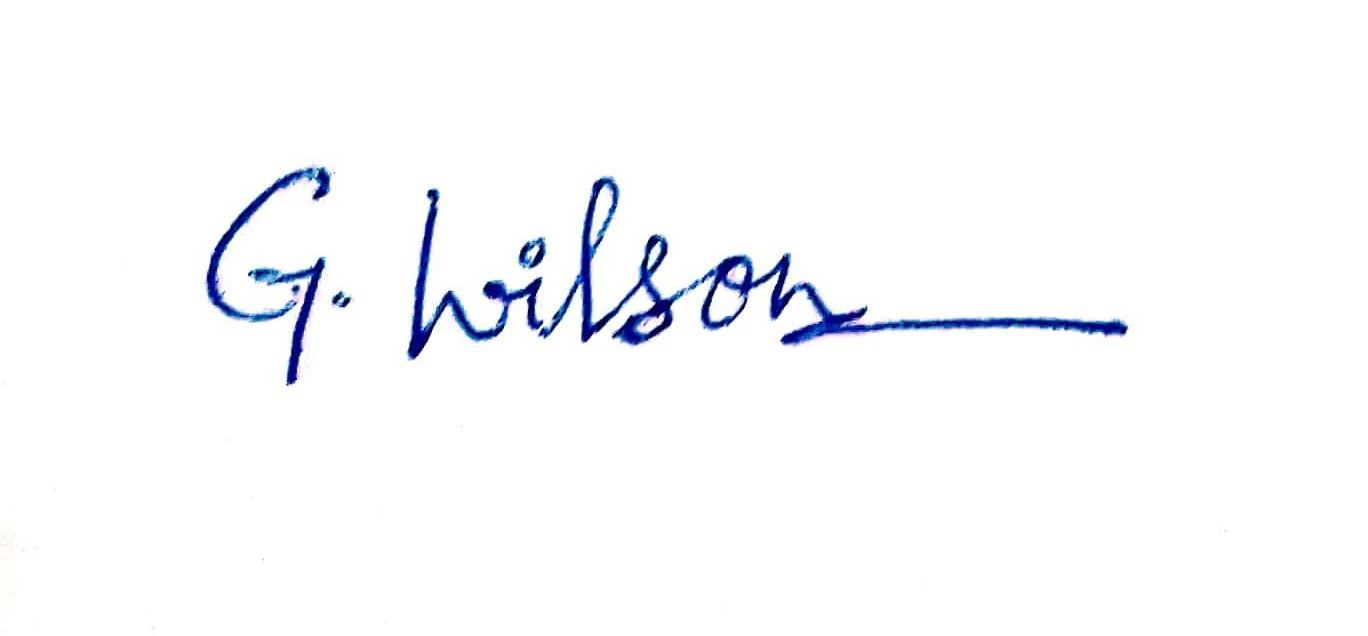 G. Wilson